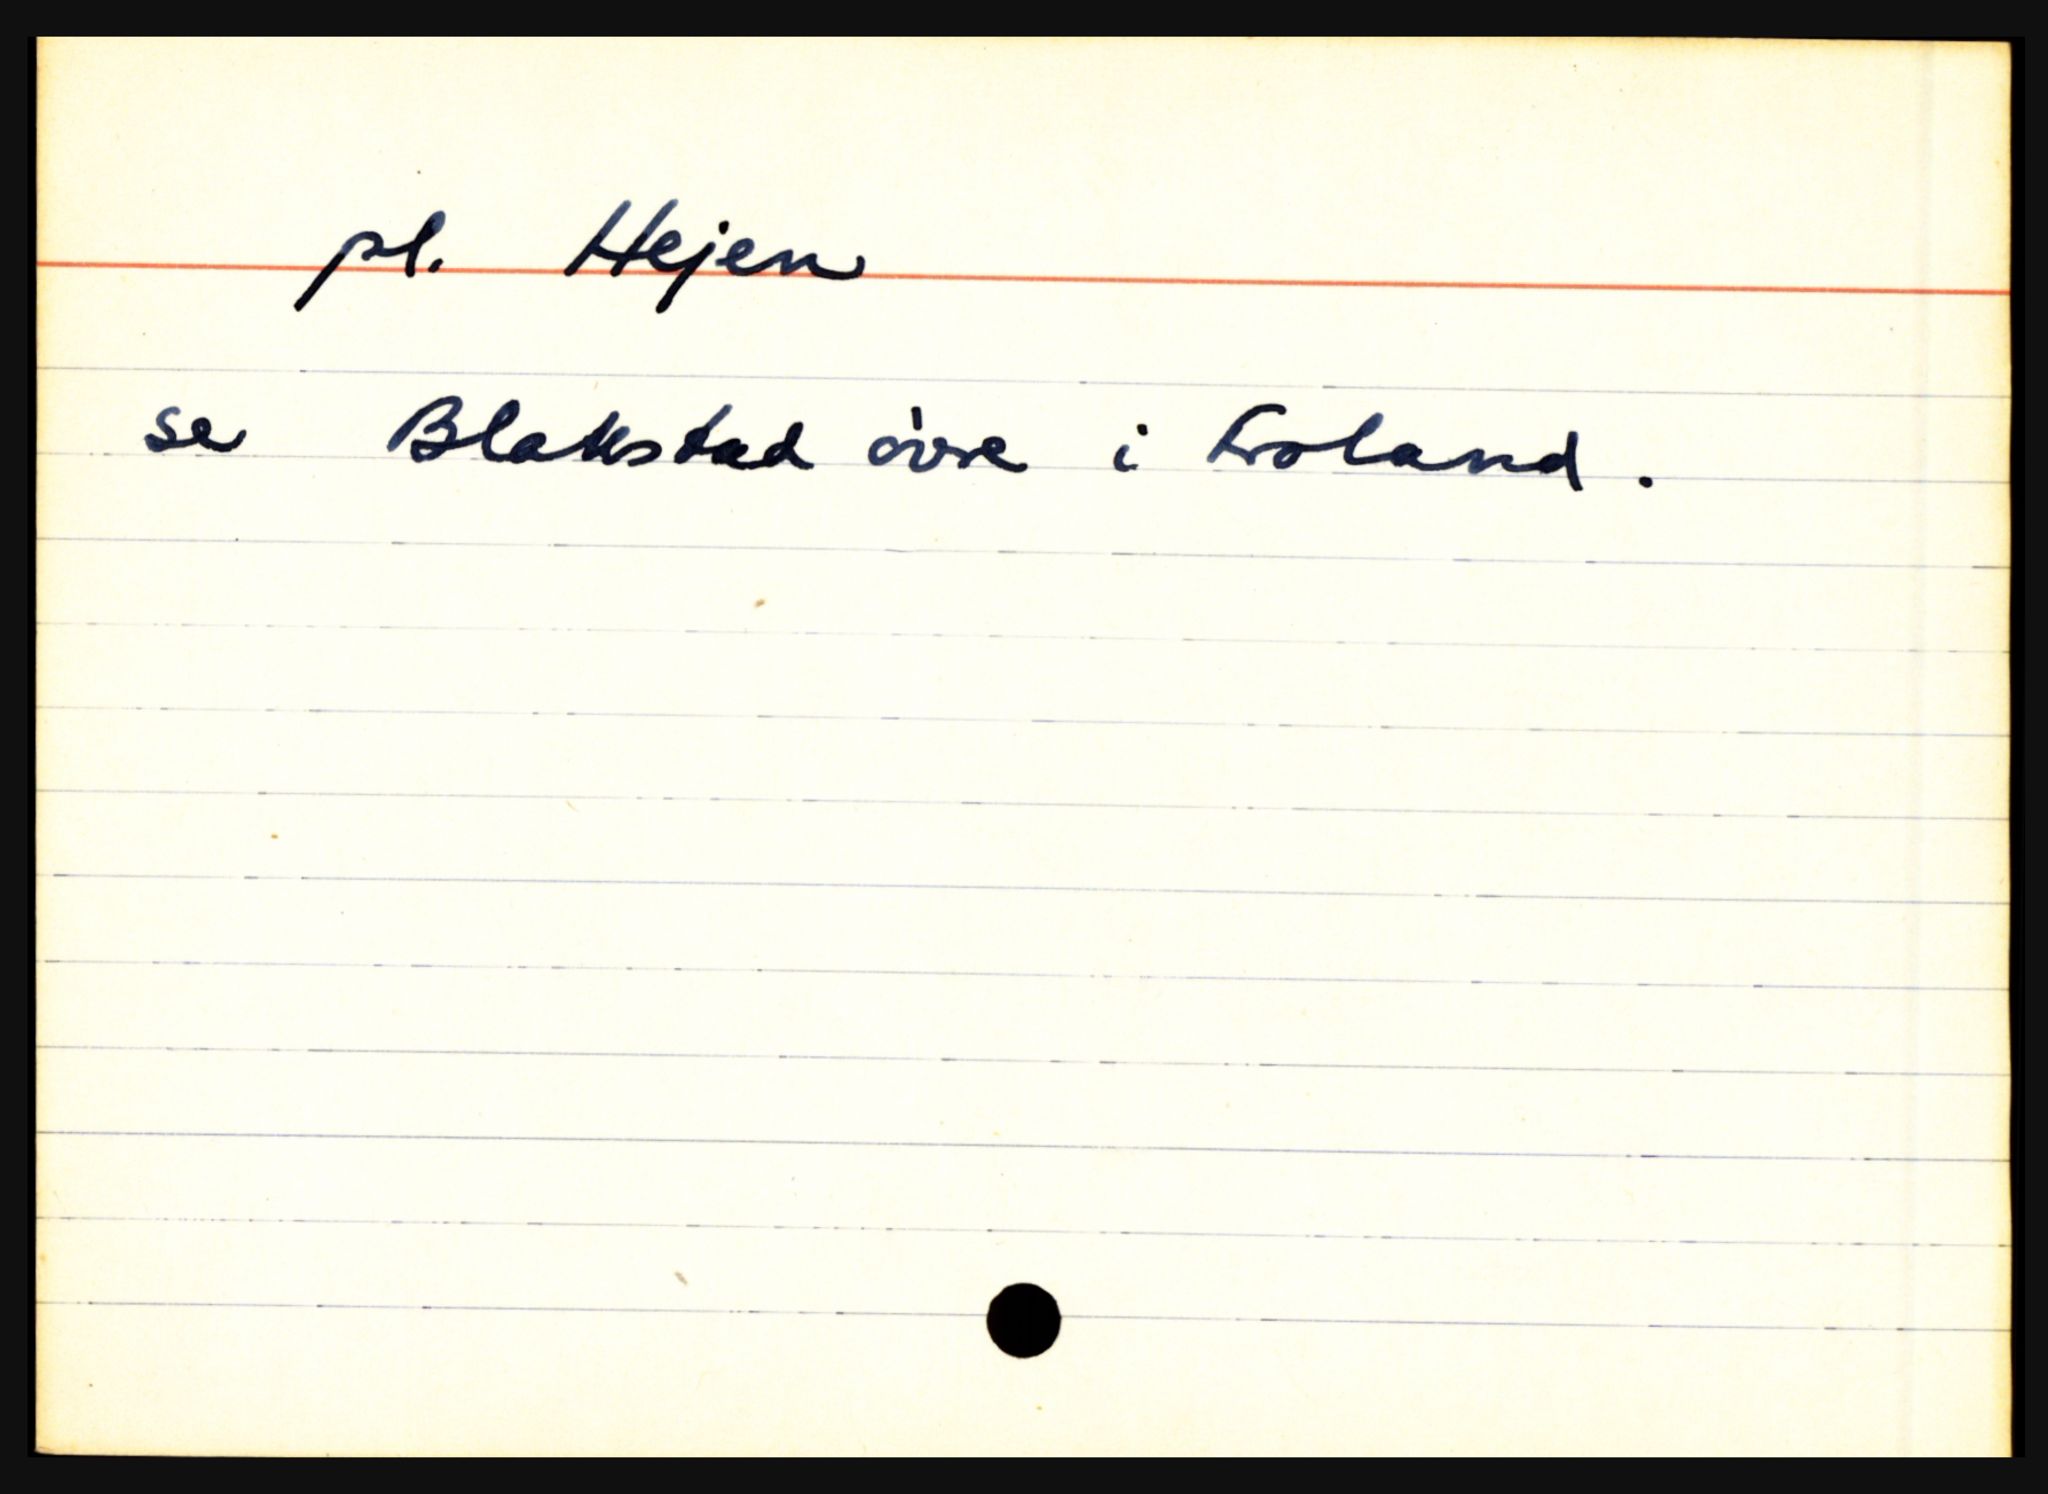 pl. Hejen
se Blakstad øvre i Froland.